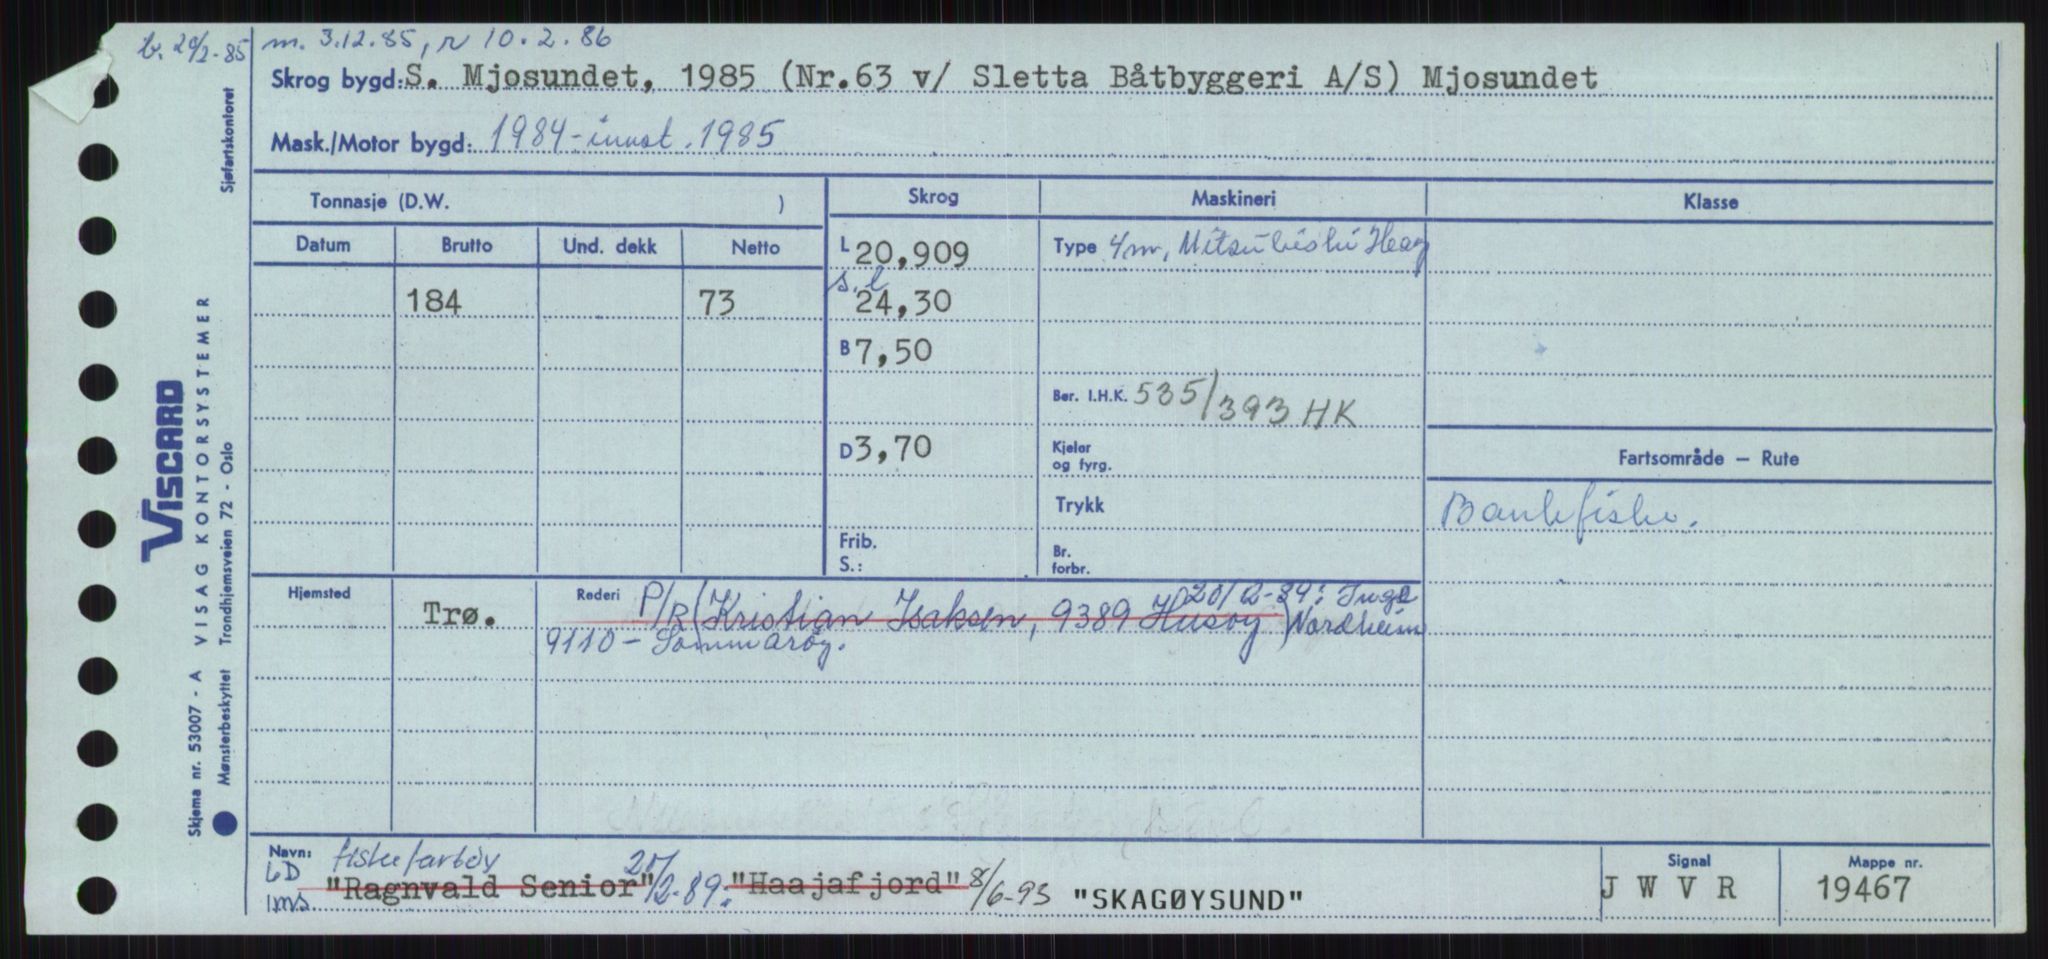 b. 20/2-85 m. 3.12.85, r 10.2.86
Skrog bygd: S. Mjosundet, 1985 (Nr.63 v/ Sletta Båtbyggeri A/S) Mjosundet
Mask./Motor bygd: 1984 - innst. 1985
Tonnasje (D.W. )
Skrog
Maskineri
Klasse
Datum Brutto Und. dekk Netto
L 20,909
Type 4m, Mitsubishi Heavy
184 73
s.l 24,30
B 7,50
Ber. I.H.K. 535/393 HK
D 3,70
Kjeler
og fyrg.
Fartsområde — Rute
Trykk
Bankfiske.
Frib.
S.:
Br.
forbr.
Hjemsted
Trø.
Rederi P/R (Kristian Isaksen, 9389 Husøy) 20/2-89: Inge
Nordheim
9110 - Sommarøy.
Navn:
LD fiskefartøy
1ms "Ragnvald Senior" 20/2-89: "Haajafjord" 8/6-93 "SKAGØYSUND"
Signal
J W V R
Mappe nr.
19467
Sjøfartskontoret
VISCARD
VISAG KONTORSYSTEMER
Trondhjemsveien 72 - Oslo
Skjema nr. 53007 - A
Mønsterbeskyttet